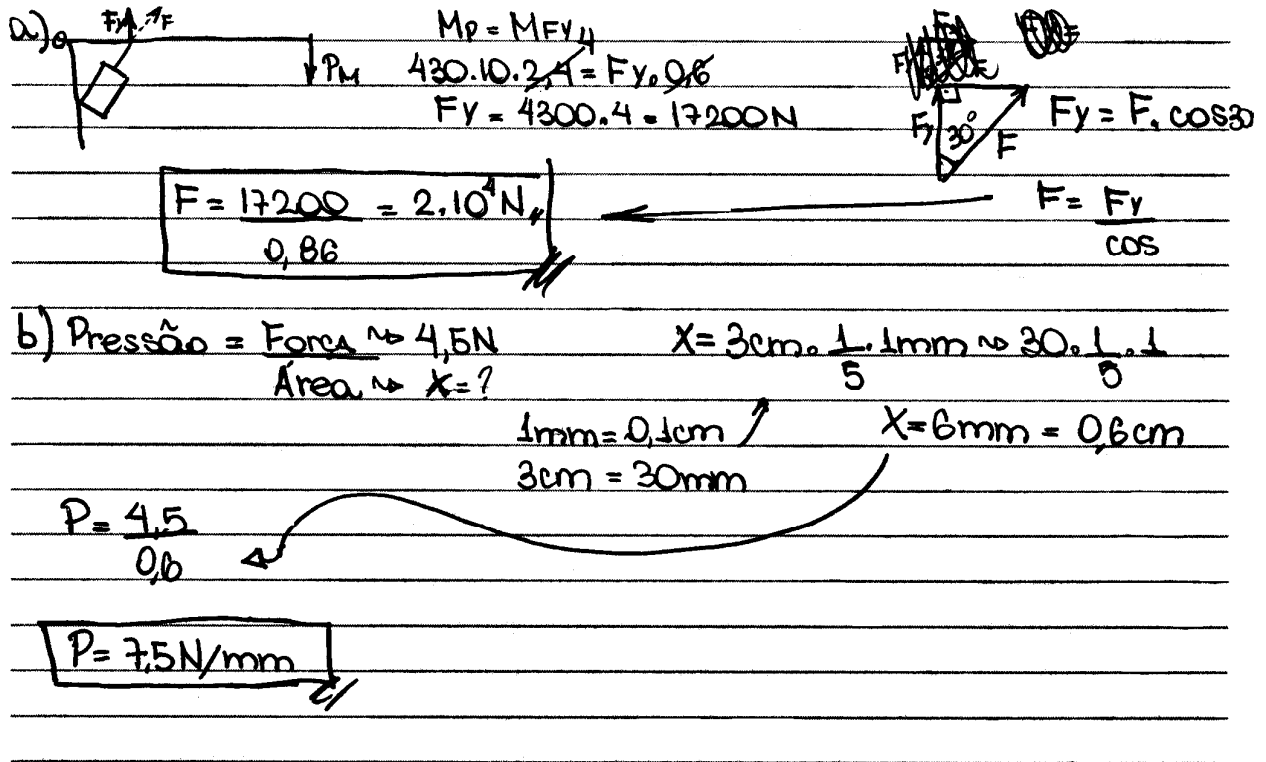 a) o Fy F
PM
Mp = MFy
430.10.2,4 = Fy.0,6 4
Fy = 4300.4 = 17200N
Fy 30° F
Fy = F. cos30
F = Fy / cos
F = 17200 / 0,86 = 2.10⁴N,,
b) Pressão = Força ~> 4,5N
Área ~> X=?
X= 3cm. 1/5 . 1mm ~> 30. 1/5 . 1
1mm = 0,1cm
3cm = 30mm
X=6mm = 0,6cm
P= 4,5 / 0,6
P= 7,5N/mm